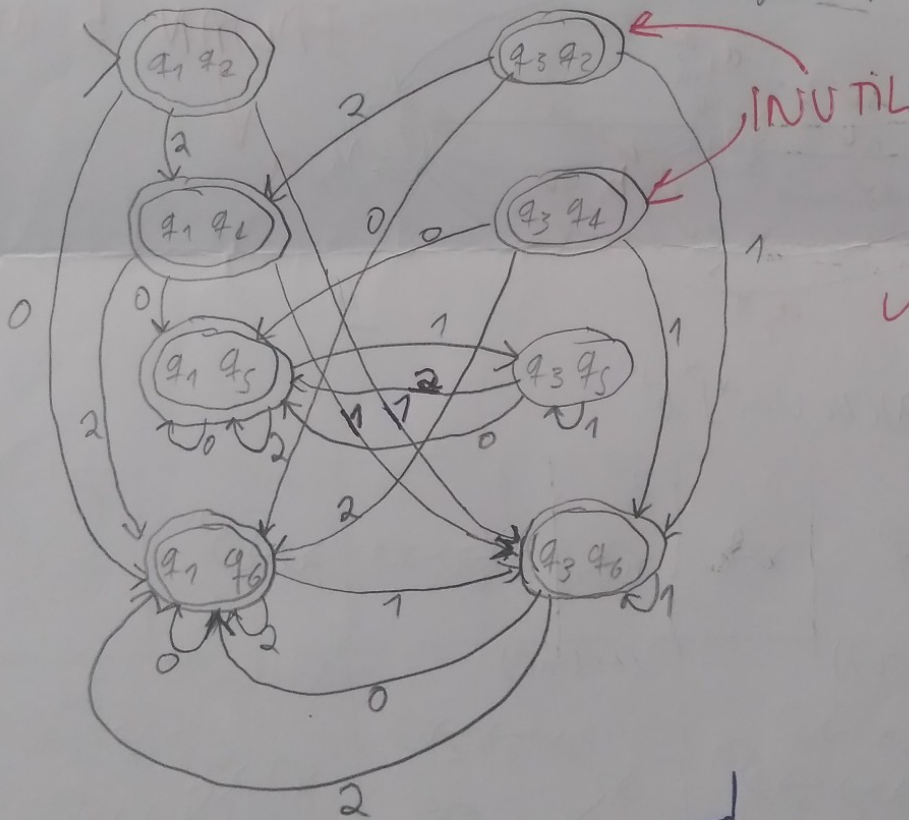 q1 q2
q3 q2
INUTIL
2
2
q1 q4
q3 q4
0
0
1
0
0
1
1
q1 q5
2
q3 q5
2
0
2
1
1
0
1
2
q1 q6
q3 q6
1
1
0
2
0
2